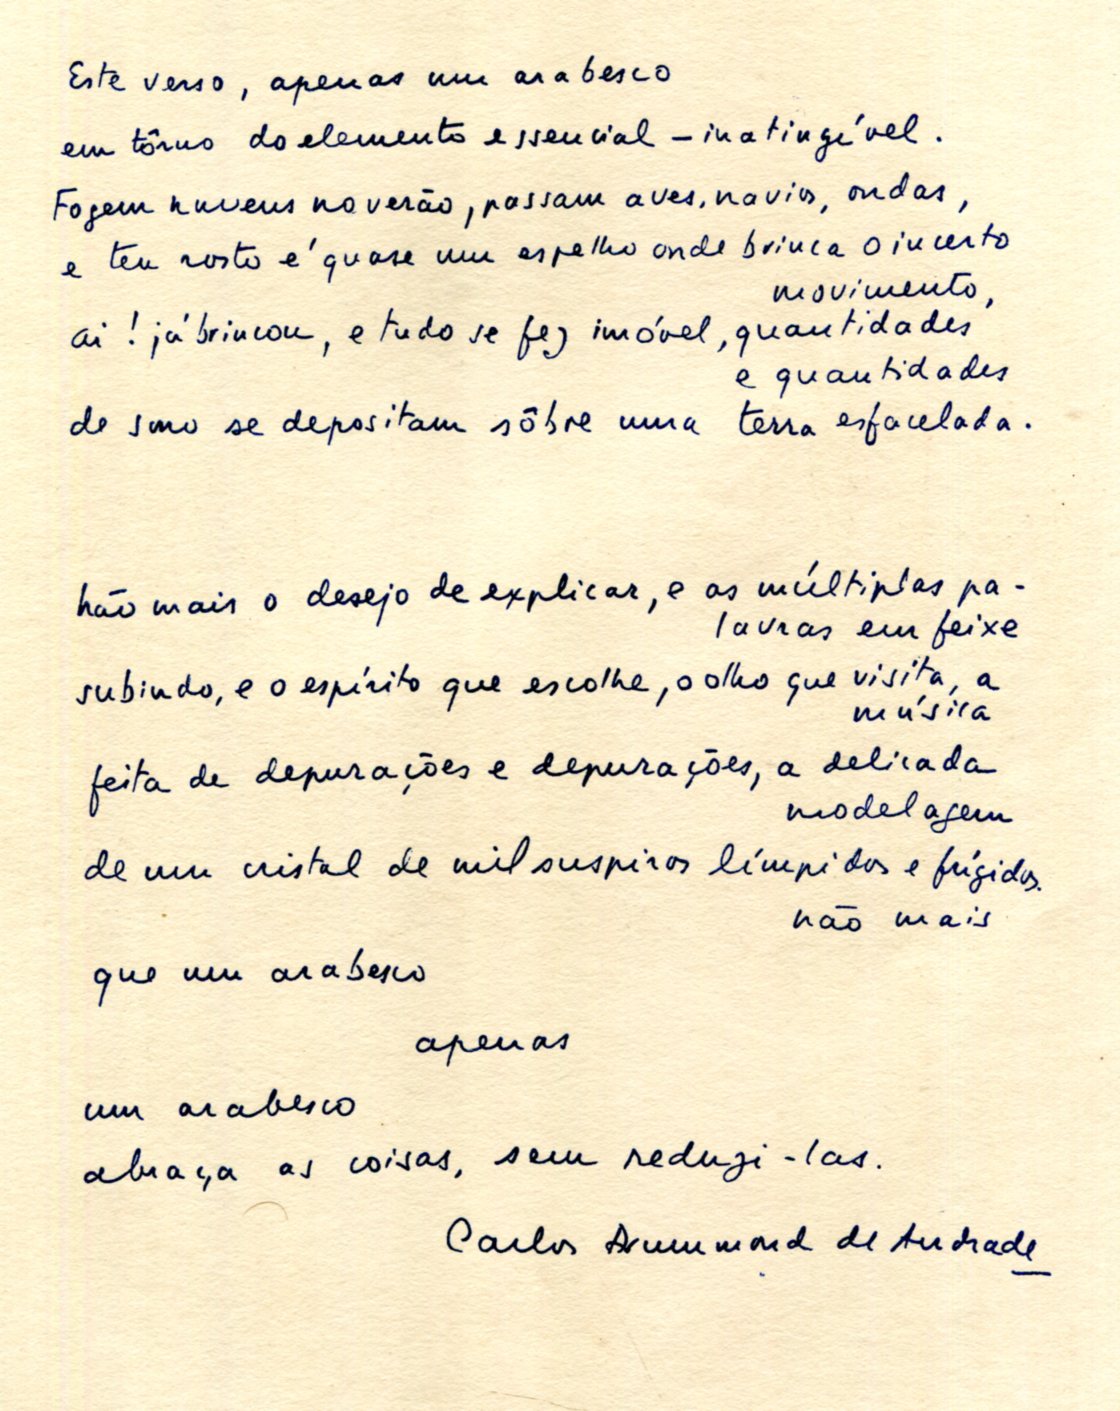 Este verso, apenas um arabesco
em tôrno do elemento essencial – inatingível.
Fogem nuvens no verão, passam aves, navios, ondas,
e teu rosto é quase um espelho onde brinca o incerto
movimento,
ai! já brincou, e tudo se fez imóvel, quantidades
e quantidades
de sono se depositam sôbre uma terra esfacelada.
Não mais o desejo de explicar, e as múltiplas pa-
lavras em feixe
subindo, e o espírito que escolhe, o olho que visita, a
música
feita de depurações e depurações, a delicada
modelagem
de um cristal de mil suspiros límpidos e frígidos.
não mais
que um arabesco
apenas
um arabesco
abraça as coisas, sem reduzi-las.
Carlos Drummond de Andrade